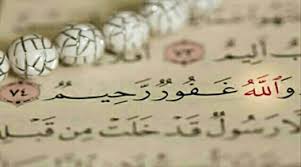 ـيم ٧٣ أفلا
وَٱللَّهُ غَفُورٌ رَّحِيمٌ ٧٤
إلا رَسُولٌ قَدْ خَلَتْ مِن قَبْلِـ